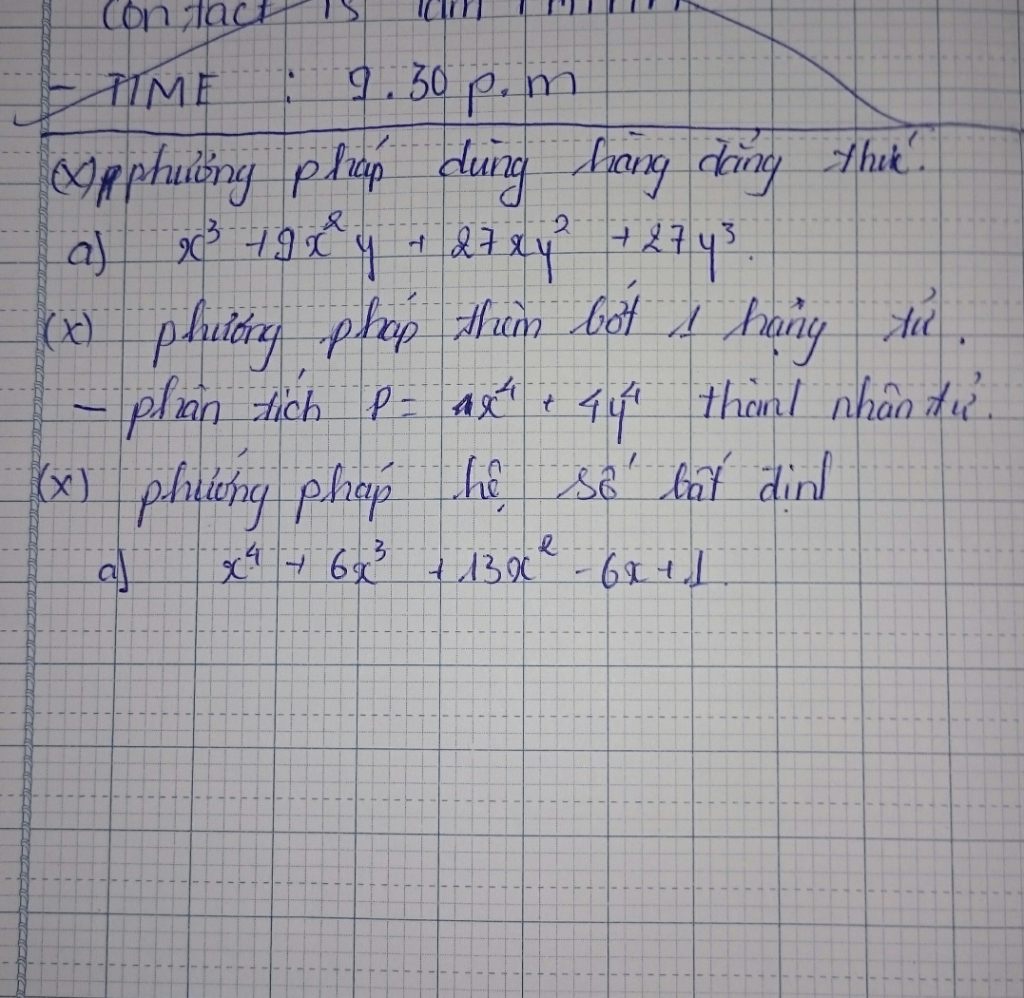 contact is
- TIME : 9.30 p.m
(x) phương pháp dùng hằng đẳng thức.
a) x³ + 9x²y + 27xy² + 27y³.
(x) phương pháp thêm bớt 1 hạng tử.
- phân tích P = x⁴ + 4y⁴ thành nhân tử.
(x) phương pháp hệ số bất định
a) x⁴ + 6x³ + 13x² - 6x + 1.